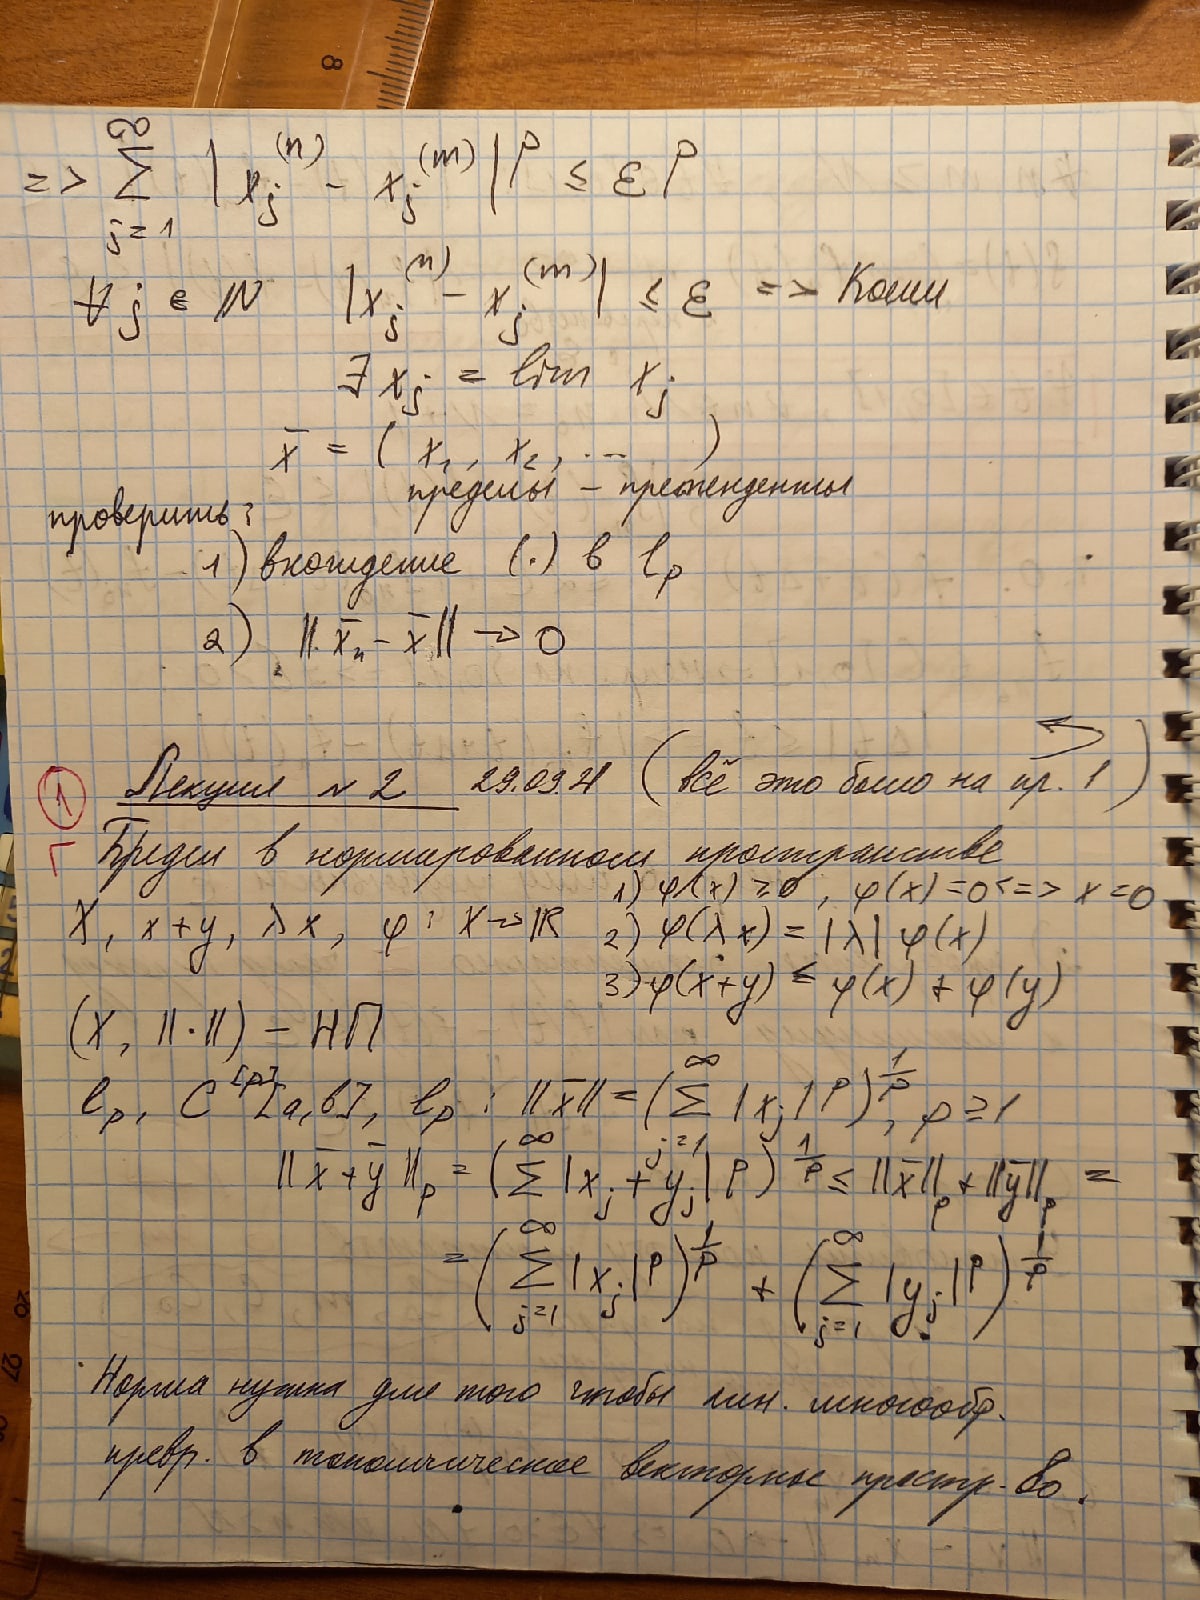 => ∑_{j=1}^{∞} |x_j^{(n)} - x_j^{(m)}|^p ≤ ε^p
∀ j ∈ ℕ |x_j^{(n)} - x_j^{(m)}| ≤ ε => Коши
∃ x_j = lim x_j
x̄ = (x_1, x_2, ...)
пределы - претенденты
проверить:
1) вхождение (·) в l_p
2) ||x̄_n - x̄|| → 0
① Лекция №2 29.09.21 (всё это было на пр. 1)
Предел в нормированном пространстве
X, x+y, λx, φ: X → ℝ
1) φ(x) ≥ 0, φ(x) = 0 <=> x = 0
2) φ(λx) = |λ| φ(x)
3) φ(x+y) ≤ φ(x) + φ(y)
(X, ||·||) - НП
l_p, C^{[p]}[a,b], l_p: ||x̄|| = (∑_{j=1}^{∞} |x_j|^p)^{1/p}, p ≥ 1
||x̄+ȳ||_p = (∑_{j=1}^{∞} |x_j + y_j|^p)^{1/p} ≤ ||x̄||_p + ||ȳ||_p =
= (∑_{j=1}^{∞} |x_j|^p)^{1/p} + (∑_{j=1}^{∞} |y_j|^p)^{1/p}
Норма нужна для того чтобы лин. многообр.
превр. в топологическое векторные простр-во.
8
26
27